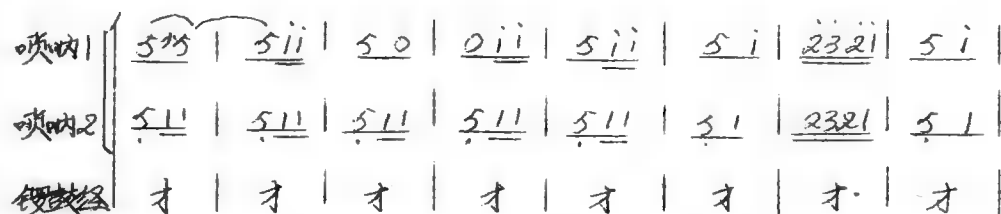 唢呐1 5 5 | 5 i̇ i̇ | 5 0 | 0 i̇ i̇ | 5 i̇ i̇ | 5 i̇ | 2̇ 3̇ 2̇ i̇ | 5 i̇ |
唢呐2 5̣ 1 1 | 5̣ 1 1 | 5̣ 1 1 | 5̣ 1 1 | 5̣ 1 1 | 5̣ 1 | 2 3 2 1 | 5̣ 1 |
锣鼓经 才 | 才 | 才 | 才 | 才 | 才 | 才 | 才 |